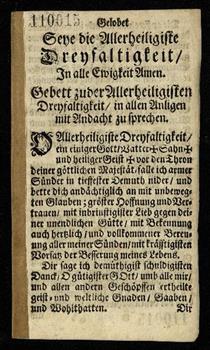 110015
Gelobet
Seye die Allerheiligiste
Dreyfaltigkeit/
In alle Ewigkeit Amen.
Gebett zu der Allerheiligisten
Dreyfaltigkeit/ in allen Anligen
mit Andacht zu sprechen.
O Allerheiligiste Dreyfaltigkeit/
ein einiger Gott/ Vatter ✠ Sohn ✠
und heiliger Geist ✠ vor den Thron
deiner göttlichen Majestät/ falle ich armer
Sünder in tieffester Demuth nider/ und
bette dich andächtiglich an mit unbeweg-
ten Glauben; gröster Hoffnung und Ver-
trauen/ mit inbrünstigister Lieb gegen dei-
ner unendlichen Gütte/ mit Bekennung
auch hertzlich/ und vollkommener Bereu-
ung aller meiner Sünden/ mit kräfftigisten
Vorsatz der Besserung meines Lebens.
Dir sage ich demüthigist schuldigisten
Danck/ O gütigister GOtt/ umb alle mir/
und allen andern Geschöpffen ertheilte
geist- und weltliche Gnaden/ Gaaben/
und Wohlthatten.
Dir